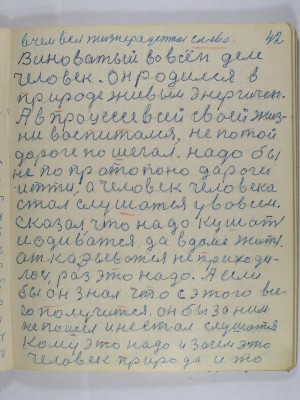 в чем вся жизнерадостная слава. 42
Виноватый во всём деле
человек. Он родился в
природе живым энергичен.
А в процессе всей своей жиз-
ни воспитался, не по той
дороге пошегал. надо бы
не по протопоно дароги
итти, а человек человека
стал слушатья у во всем.
Сказал что надо кушать
и одиватся да в доме жить.
атказыватся не приходи-
лось, раз это надо. А если
бы он знал что с этого все-
го получится. он бы за ним
не пошел и не стал слушатся
Кому это надо и зачем это
человек природа и то